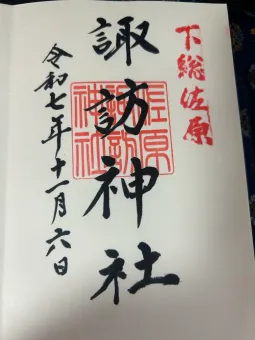 下総佐原
諏訪神社
佐原
諏訪
神社
令和七年十一月六日